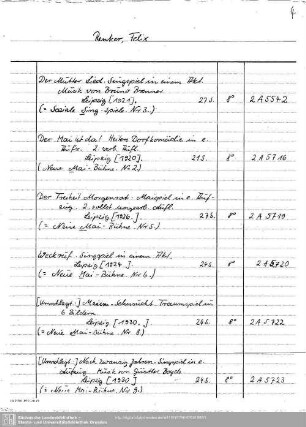 Renker, Felix
Der Mutter Lied. Singspiel in einem Akt.
Musik von Bruno Brenner.
Leipzig [1921]. 27 S. 8° 2 A 5542
(= Soziale Sing-Spiele. Nr. 3.)
Der Mai ist da! Heitere Dorfkomödie in e.
Aufz. 2. verb. Aufl.
Leipzig [1920]. 21 S. 8° 2 A 5716
(Neue Mai-Bühne Nr. 2)
Der Freiheit Morgenrot. Maispiel in e. Auf-
zug. 2. vollst. umgearb. Aufl.
Leipzig [1926.] 27 S. 8° 2 A 5719
(= Neue Mai-Bühne. Nr. 5.)
Weckruf. Singspiel in einem Akt.
Leipzig [1924.] 24 S. 8° 2 A 5720
(= Neue Mai-Bühne Nr. 6.)
[Umschlagt.:] Maien-Sehnsucht. Traumspiel in
6 Bildern
Leipzig [1920.] 24 S. 8° 2 A 5722
(= Neue Mai-Bühne Nr. 8.)
[Umschlagt.:] Nach zwanzig Jahren. Singspiel in e.
Aufzug. Musik von Günther
Leipzig [1920] 24 S. 8° 2 A 5723
(= Neue Mai-Bühne Nr. 9.)